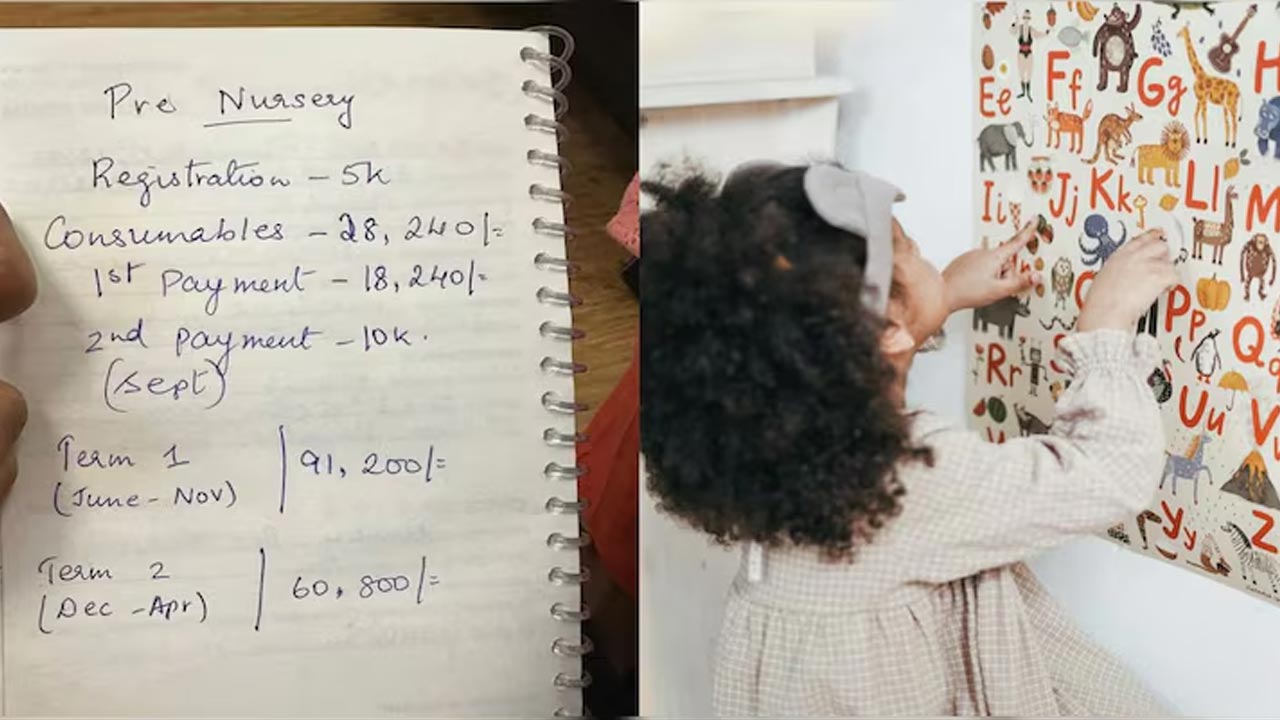 Pre Nursery
Registration - 5k
Consumables - 28, 240/=
1st Payment - 18,240/=
2nd payment - 10k.
(Sept)
Term 1 | 91, 200/=
(June - Nov)
Term 2 | 60, 800/=
(Dec - Apr)
Ee Ff Gg H
Ii Jj Kk Ll M
Pp Q
Rr S Uu V
Yy Z